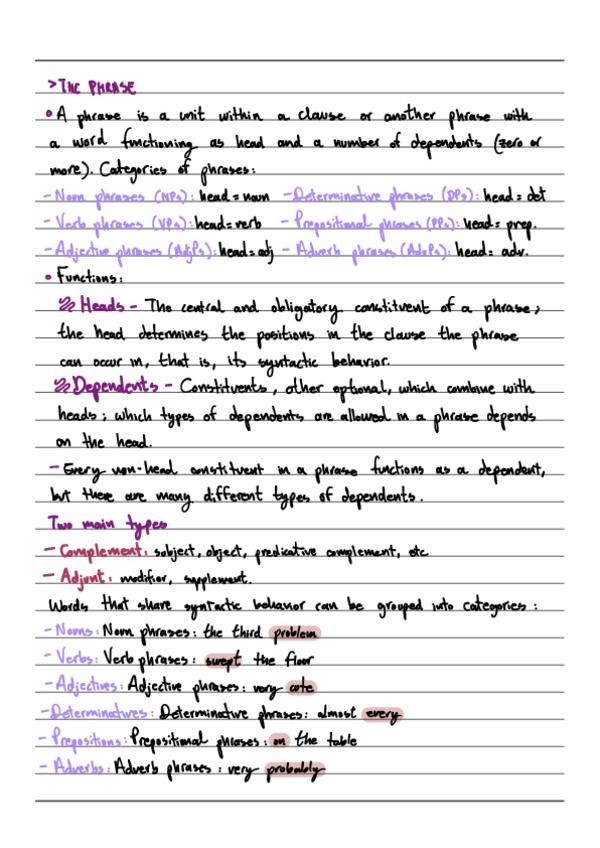 >THE PHRASE
• A phrase is a unit within a clause or another phrase with
a word functioning as head and a number of dependents (zero or
more). Categories of phrases:
- Noun phrases (NPs): head = noun - Determinative phrases (DPs): head = det
- Verb phrases (VPs): head = verb - Prepositional phrases (PPs): head = prep.
- Adjective phrases (AdjPs): head = adj - Adverb phrases (AdvPs): head = adv.
• Functions:
Heads - The central and obligatory constituent of a phrase;
the head determines the positions in the clause the phrase
can occur in, that is, its syntactic behavior.
Dependents - Constituents, other optional, which combine with
heads; which types of dependents are allowed in a phrase depends
on the head.
- Every non-head constituent in a phrase functions as a dependent,
but there are many different types of dependents.
Two main types
- Complement: subject, object, predicative complement, etc
- Adjunt: modifier, supplement.
Words that share syntactic behavior can be grouped into categories:
- Nouns: Noun phrases: the third problem
- Verbs: Verb phrases: swept the floor
- Adjectives: Adjective phrases: very cute
- Determinatives: Determinative phrases: almost every
- Prepositions: Prepositional phrases: on the table
- Adverbs: Adverb phrases: very probably